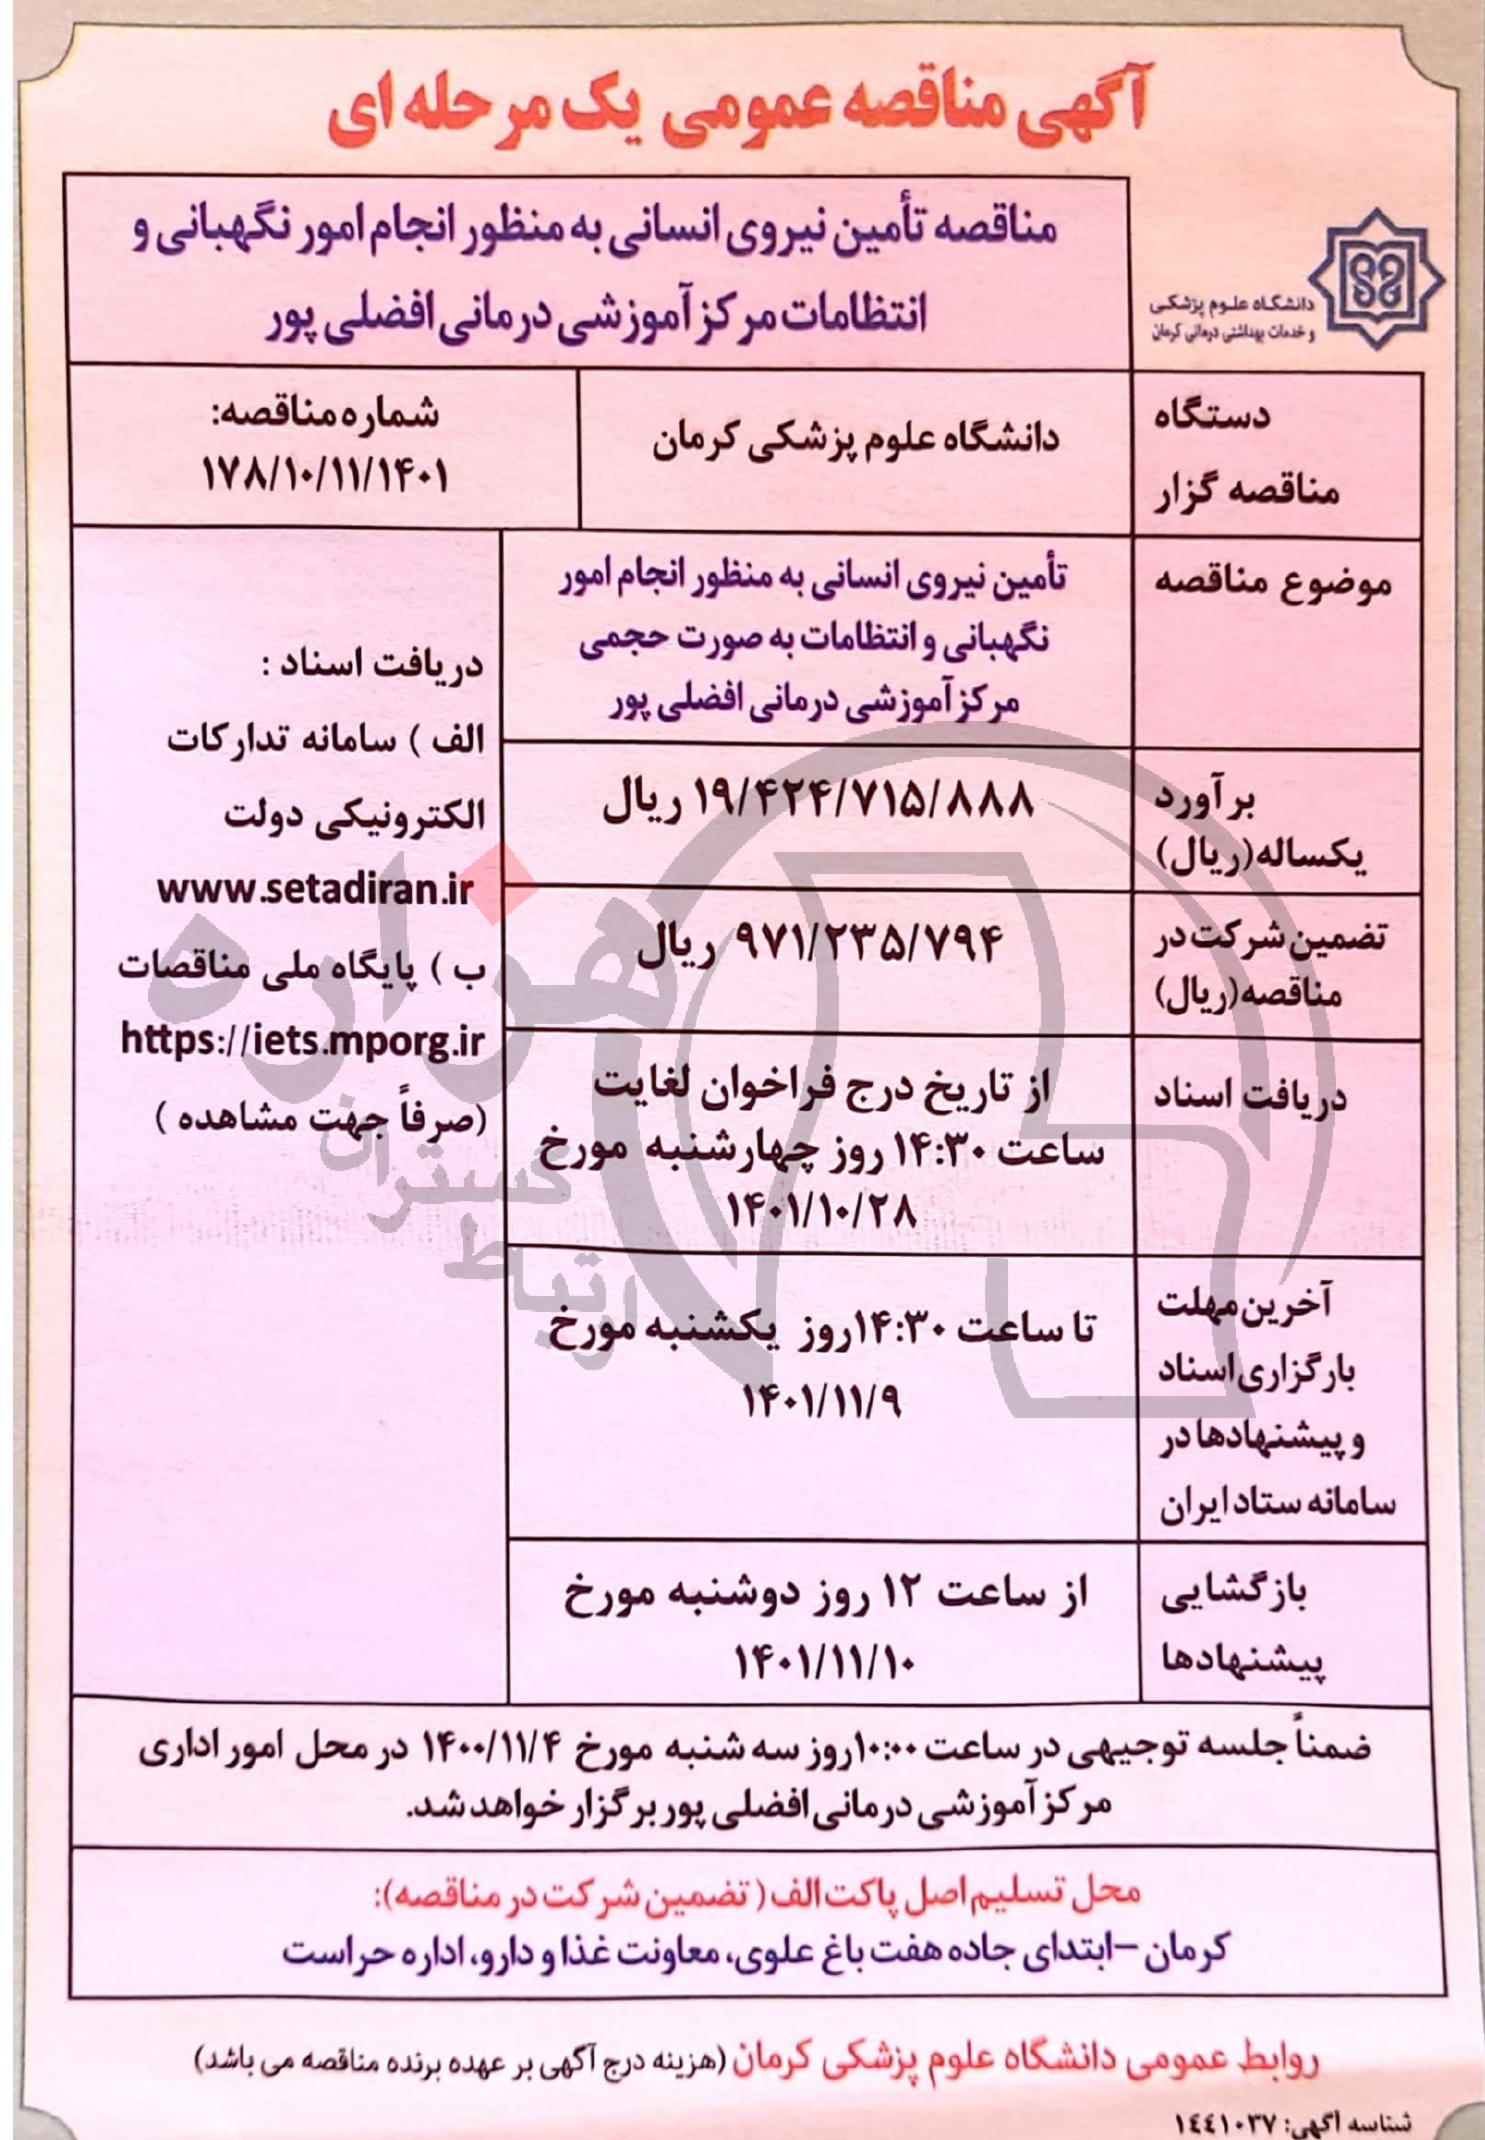 آگهی مناقصه عمومی یک مرحله ای
دانشگاه علوم پزشکی
و خدمات بهداشتی درمانی کرمان
مناقصه تأمین نیروی انسانی به منظور انجام امور نگهبانی و
انتظامات مرکز آموزشی درمانی افضلی پور
دستگاه
مناقصه گزار
دانشگاه علوم پزشکی کرمان
شماره مناقصه:
۱۷۸/۱۰/۱۱/۱۴۰۱
موضوع مناقصه
تأمین نیروی انسانی به منظور انجام امور
نگهبانی و انتظامات به صورت حجمی
مرکز آموزشی درمانی افضلی پور
برآورد
یکساله(ریال)
۱۹/۴۲۴/۷۱۵/۸۸۸ ریال
تضمین شرکت در
مناقصه(ریال)
۹۷۱/۲۳۵/۷۹۴ ریال
دریافت اسناد
از تاریخ درج فراخوان لغایت
ساعت ۱۴:۳۰ روز چهارشنبه مورخ
۱۴۰۱/۱۰/۲۸
آخرین مهلت
بارگزاری اسناد
و پیشنهادها در
سامانه ستاد ایران
تا ساعت ۱۴:۳۰روز یکشنبه مورخ
۱۴۰۱/۱۱/۹
بازگشایی
پیشنهادها
از ساعت ۱۲ روز دوشنبه مورخ
۱۴۰۱/۱۱/۱۰
دریافت اسناد :
الف ) سامانه تدارکات
الکترونیکی دولت
www.setadiran.ir
ب ) پایگاه ملی مناقصات
https://iets.mporg.ir
(صرفاً جهت مشاهده )
هزاره
گستران
ارتباط
ضمناً جلسه توجیهی در ساعت ۱۰:۰۰روز سه شنبه مورخ ۱۴۰۰/۱۱/۴ در محل امور اداری
مرکز آموزشی درمانی افضلی پور برگزار خواهد شد.
محل تسلیم اصل پاکت الف ( تضمین شرکت در مناقصه):
کرمان –ابتدای جاده هفت باغ علوی، معاونت غذا و دارو، اداره حراست
روابط عمومی دانشگاه علوم پزشکی کرمان (هزینه درج آگهی بر عهده برنده مناقصه می باشد)
شناسه آگهی: ۱٤٤۱۰۳۷